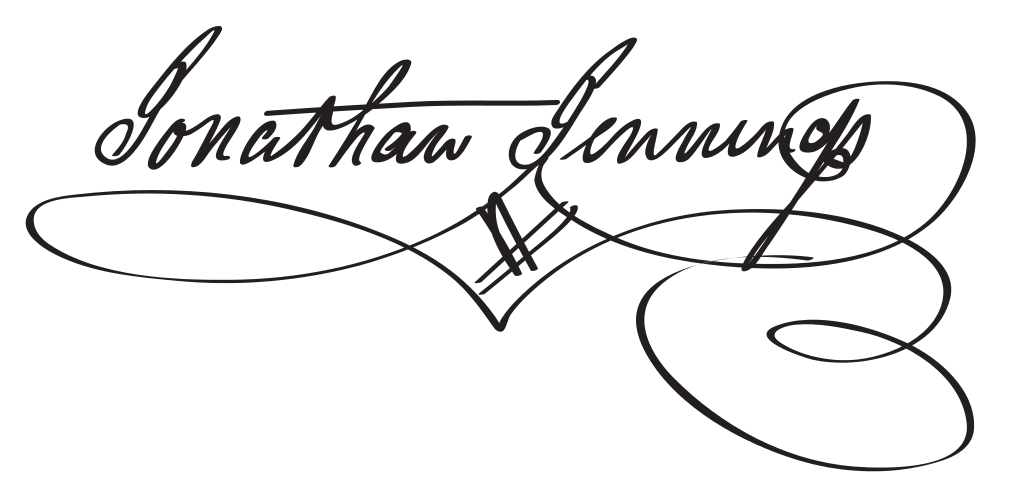 Jonathan Jennings